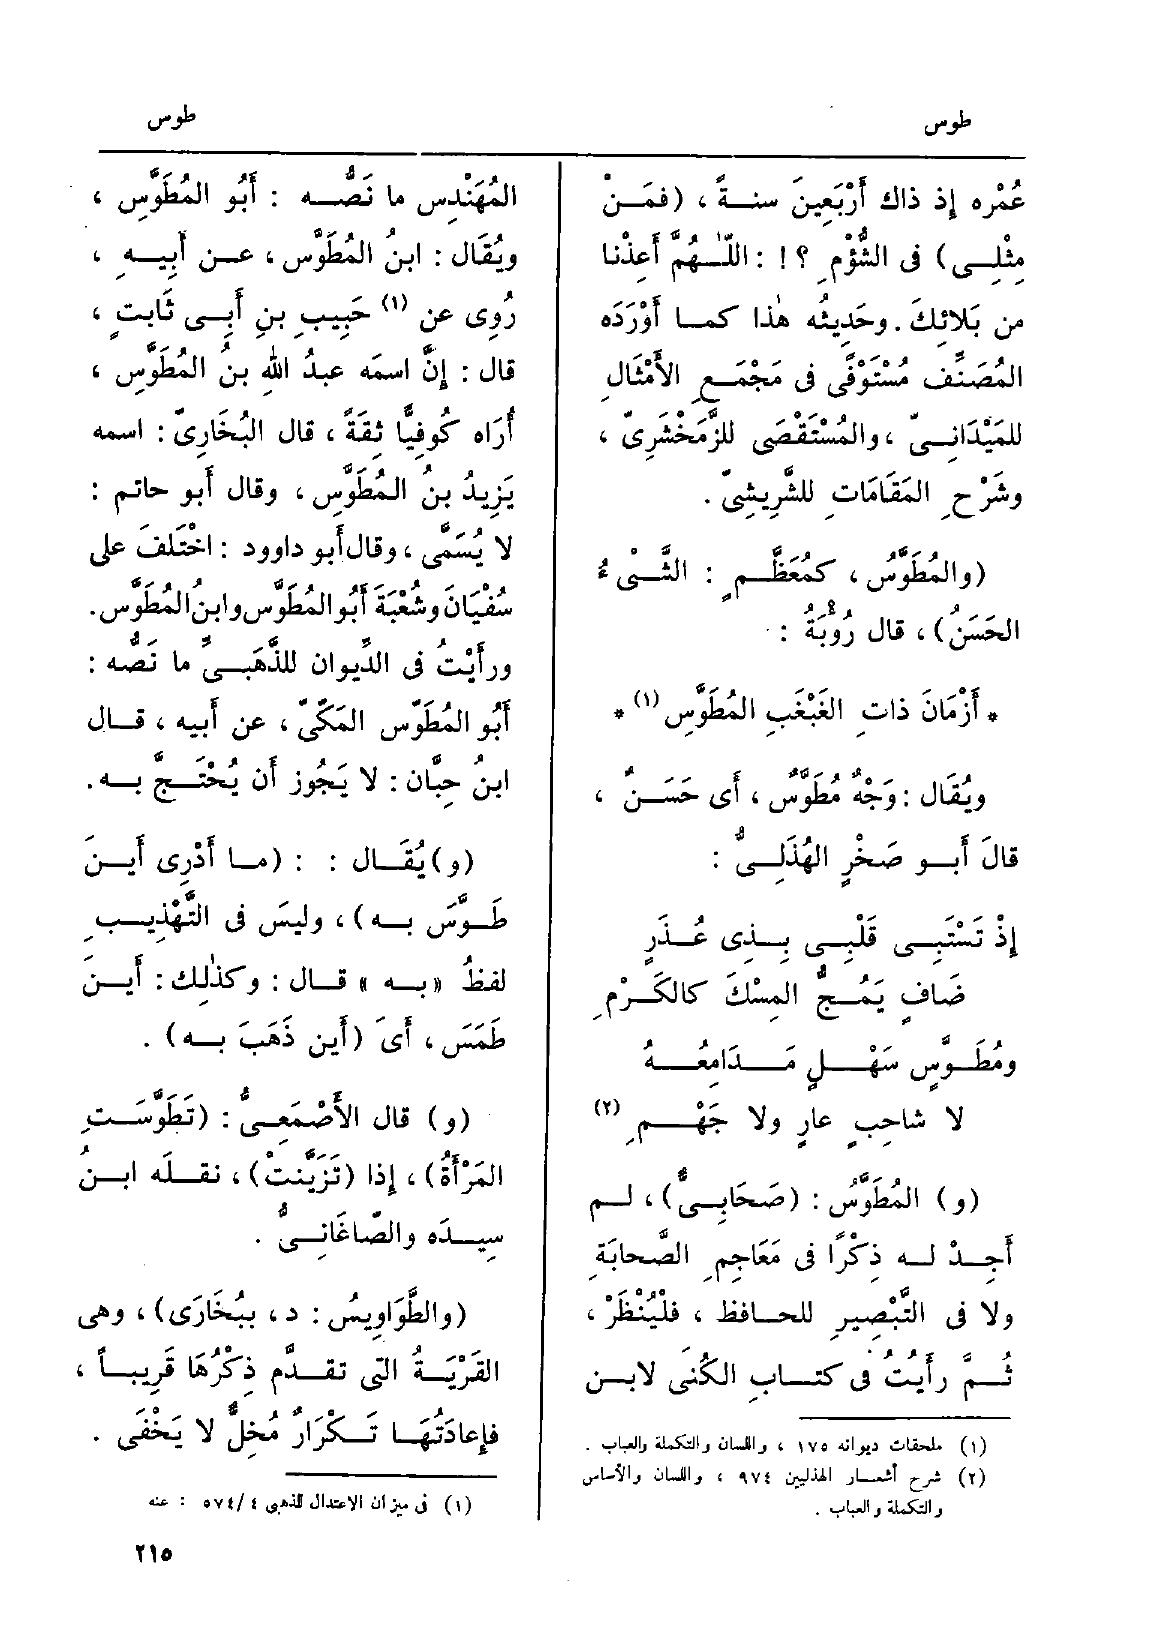 طوس
طوس
عُمْره إذ ذاك أَرْبَعِينَ سنــةً ، (فمَــنْ
مِثْلِــى) فى الشُّؤْمِ ؟ ! : اللّٰــهُمَّ أَعِذْنا
من بَلائِكَ . وحَدِيثُه هٰذا كمــا أَوْرَدَه
المُصَنِّف مُسْتَوْفًى فى مَجْمَعِ الأَمْثَالِ
للمَيْدَانِــىّ ، والمُسْتَقْصَى للزَّمَخْشَرِىّ ،
وشَرْحِ المَقَامَاتِ للشَّرِيشِىّ .
(والمُطَوَّسُ ، كمُعَظَّــمٍ : الشَّــىْءُ
الحَسَنُ) ، قال رُؤْبَةُ :
* أَزْمَانَ ذاتِ الغَبْغَبِ المُطَوَّسِ (١) *
ويُقَال : وَجْهٌ مُطَوَّسٌ ، أَى حَسَــنٌ ،
قالَ أَبــو صَخْرٍ الهُذَلِــىُّ :
إِذْ تَسْتَبِــى قَلْبِــى بِــذِى عُــذَرٍ
ضَافٍ يَمُــجُّ المِسْكَ كالكَــرْمِ
ومُطَــوَّسٍ سَهْــلٍ مَــدَامِعُــهُ
لا شاحِبٍ عارٍ ولا جَهْــمِ (٢)
(و) المُطَوَّسُ : (صَحَابِــىٌّ) ، لــم
أَجِــدْ لــه ذِكْرًا فى مَعَاجِمِ الصَّحابَةِ
ولا فى التَّبْصِيرِ للحــافظ ، فلْيُنْظَرْ ،
ثُــمَّ رأَيْتُ فى كتــابِ الكُنَى لابــنِ
(١) ملحقات ديوانه ١٧٥ ، واللسان والتكملة والعباب .
(٢) شرح أشعــار الهذليين ٩٧٤ ، واللسان والأساس
والتكملة والعباب .
المُهَنْدِسِ ما نَصُّــه : أَبُو المُطَوِّسِ ،
ويُقَال : ابنُ المُطَوِّسِ ، عــن أَبِيــهِ ،
رُوِى عن (١) حَبِيبِ بنِ أَبِــى ثابتٍ ،
قال : إِنَّ اسمَه عبدُ اللهِ بنُ المُطَوِّسِ ،
أُرَاه كُوفِيًّا ثِقَةً ، قال البُخَارِىّ : اسمه
يَزِيدُ بنُ المُطَوِّسِ ، وقال أَبو حاتم :
لا يُسَمَّى ، وقال أَبو داوود : اخْتَلَفَ على
سُفْيَانَ وشُعْبَةَ أَبُو المُطَوِّس وابنُ المُطَوِّس .
ورأَيْتُ فى الدِّيوان للذَّهَبِــىِّ ما نَصُّه :
أَبُو المُطَوِّس المَكِّىّ ، عن أَبيه ، قــال
ابنُ حِبَّان : لا يَجُوز أَن يُحْتَــجَّ بــه .
(و) يُقَــال : : (مــا أَدْرِى أَيــنَ
طَــوَّسَ بــه) ، وليسَ فى التَّهْذِيــبِ
لفظُ « بــه » قــال : وكذٰلك : أَيــنَ
طَمَسَ ، أَىَ (أَين ذَهَبَ بــه) .
(و) قال الأَصْمَعِــىُّ : (تَطَوَّسَــتِ
المَرْأَةُ) ، إِذا (تَزَيَّنتْ) ، نقــلَه ابــنُ
سِيــدَه والصّاغَانِــىُّ .
(والطَّوَاوِيسُ : د ، ببُخَارَى) ، وهى
القَرْيَــةُ التى تقــدَّم ذِكْرُهَا قَرِيبــاً ،
فإِعادَتُهَــا تَــكْرَارٌ مُخِلٌّ لا يَخْفَى .
(١) فى ميزان الاعتدال للذهبى ٤ /٥٧٤ : عنه
٢١٥